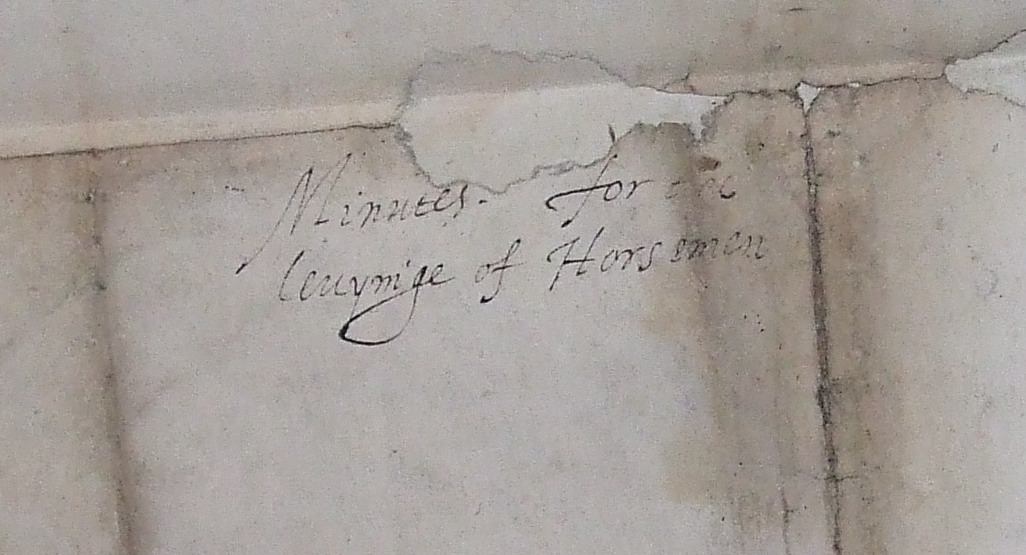 Minutes. for the
levynige of Horsemen